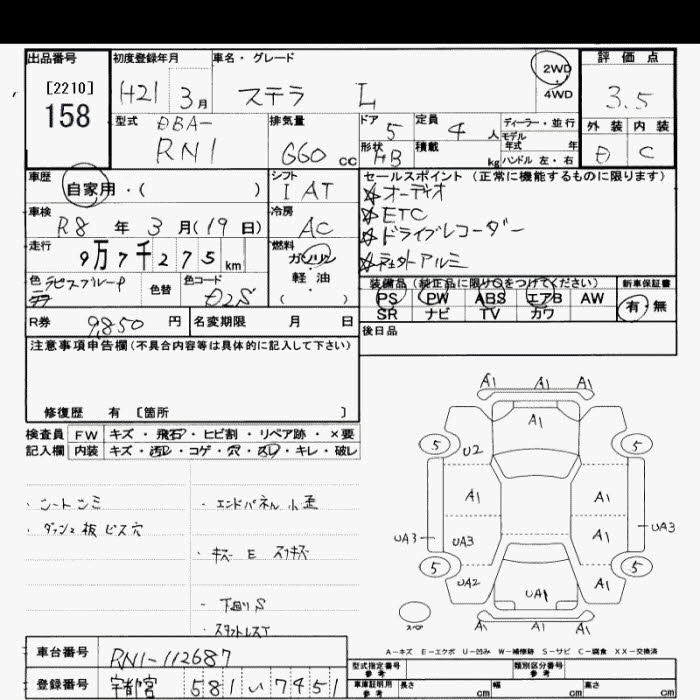 出品番号 初度登録年月 車名・グレード 評価点
[2210] H21 3月 ステラ L 2WD 3.5
158 4WD
型式 DBA- 排気量 ドア 5 定員 4人 ディーラー・並行 外装 内装
RN1 660 cc 形状 HB 積載 kg モデル年式 年 D C
ハンドル 左・右
車歴 シフト セールスポイント (正常に機能するものに限ります)
自家用・( ) IAT ☆オーディオ
車検 冷房 ☆ETC
R8年 3月(19日) AC ☆ドライブレコーダー
走行 燃料 ☆社外アルミ
9万7千275km ガソリン
軽・油
( )
色 ラピスブルーP 色替 色コード D2S
装備品 (純正品に限り○をつけてください) 新車保証書
PS PW ABS エアB AW 有・無
SR ナビ TV カワ
R券 9,850円 名変期限 月 日 後日品
注意事項申告欄(不具合内容等は具体的に記入して下さい)
修復歴 有 [箇所 ]
検査員 FW キズ・飛石・ヒビ割・リペア跡・×要
記入欄 内装 キズ・汚レ・コゲ・穴・スレ・キレ・破レ
・シートシミ
・ダッシュ板 ビス穴
・エンドパネル小歪
・キズ E スリキズ
・下回りS
A1 A1 A1
A1
5 5
U2
A1 A1
UA3 UA3 A1 UA3
5 5
UA2 A1
UA1
A1 A1 A1
スペア
A-キズ E-エクボ U-凹み W-補修跡 S-サビ C-腐食 XX-交換済
車台番号 RN1-112687
登録番号 宇都宮 581 い 7451
型式指定番号 参考 類別区分番号 参考
車庫証明用 参考 長さ cm 幅 cm 高さ cm